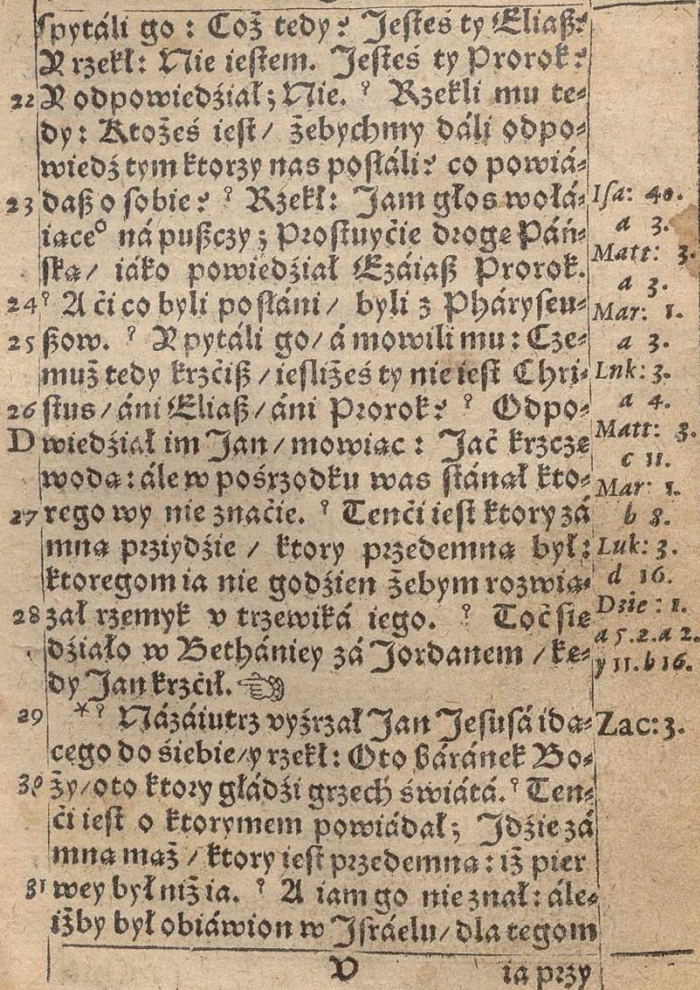 spytáli go : Coż tedy? Jesteś ty Eliasz?
Y rzekł: Nie iestem. Jesteś ty Prorok?
22 Y odpowiedźiał; Nie. ? Rzekli mu te-
dy: Ktożeś iest / żebychmy dáli odpo-
wiedź tym ktorzy nas posłáli? co powiá-
23 dasz o sobie? ? Rzekł: Jam głos wołá-
iąceº ná puszczy; Prostuyćie drogę Páń-
ską / iáko powiedźiał Ezáiasz Prorok.
24 ? A ći co byli posłáni / byli z Pháryseu-
25 szow. ? Y pytáli go / á mowili mu: Cze-
muż tedy krzćisz / iesliżeś ty nie iest Chri-
26 stus / áni Eliasz / áni Prorok? ? Odpo-
D wiedźiał im Jan / mowiąc : Jać krzczę
wodą: ále w pośrzodku was stánął kto-
27 rego wy nie znaćie. ? Tenći iest ktory zá
mną prziydźie / ktory przedemną był:
ktoregom ia nie godźien żebym rozwią-
28 zał rzemyk v trzewiká iego. ? Toć się
dźiało w Bethániey zá Jordanem / kę-
dy Jan krzćił. ☜
29 *? Názáiutrz vyźrzał Jan Jesusá idą-
cego do śiebie / y rzekł: Oto Báránek Bo-
30 ży / oto ktory głádźi grzech świátá. ? Ten-
ći iest o ktorymem powiádał; Jdźie zá
mną mąż / ktory iest przedemną: iż pier
31 wey był niż ia. ? A iam go nie znał: ále-
iżby był obiáwion w Jsráelu / dla tegom
V ia przy
Isa: 40.
a 3.
Matt: 3.
a 3.
Mar: 1.
a 3.
Luk: 3.
a 4.
Matt: 3.
c 11.
Mar: 1.
b 8.
Luk: 3.
d 16.
Dzie: 1.
a 5.2.a 2.
y 11.b 16.
Zac: 3.